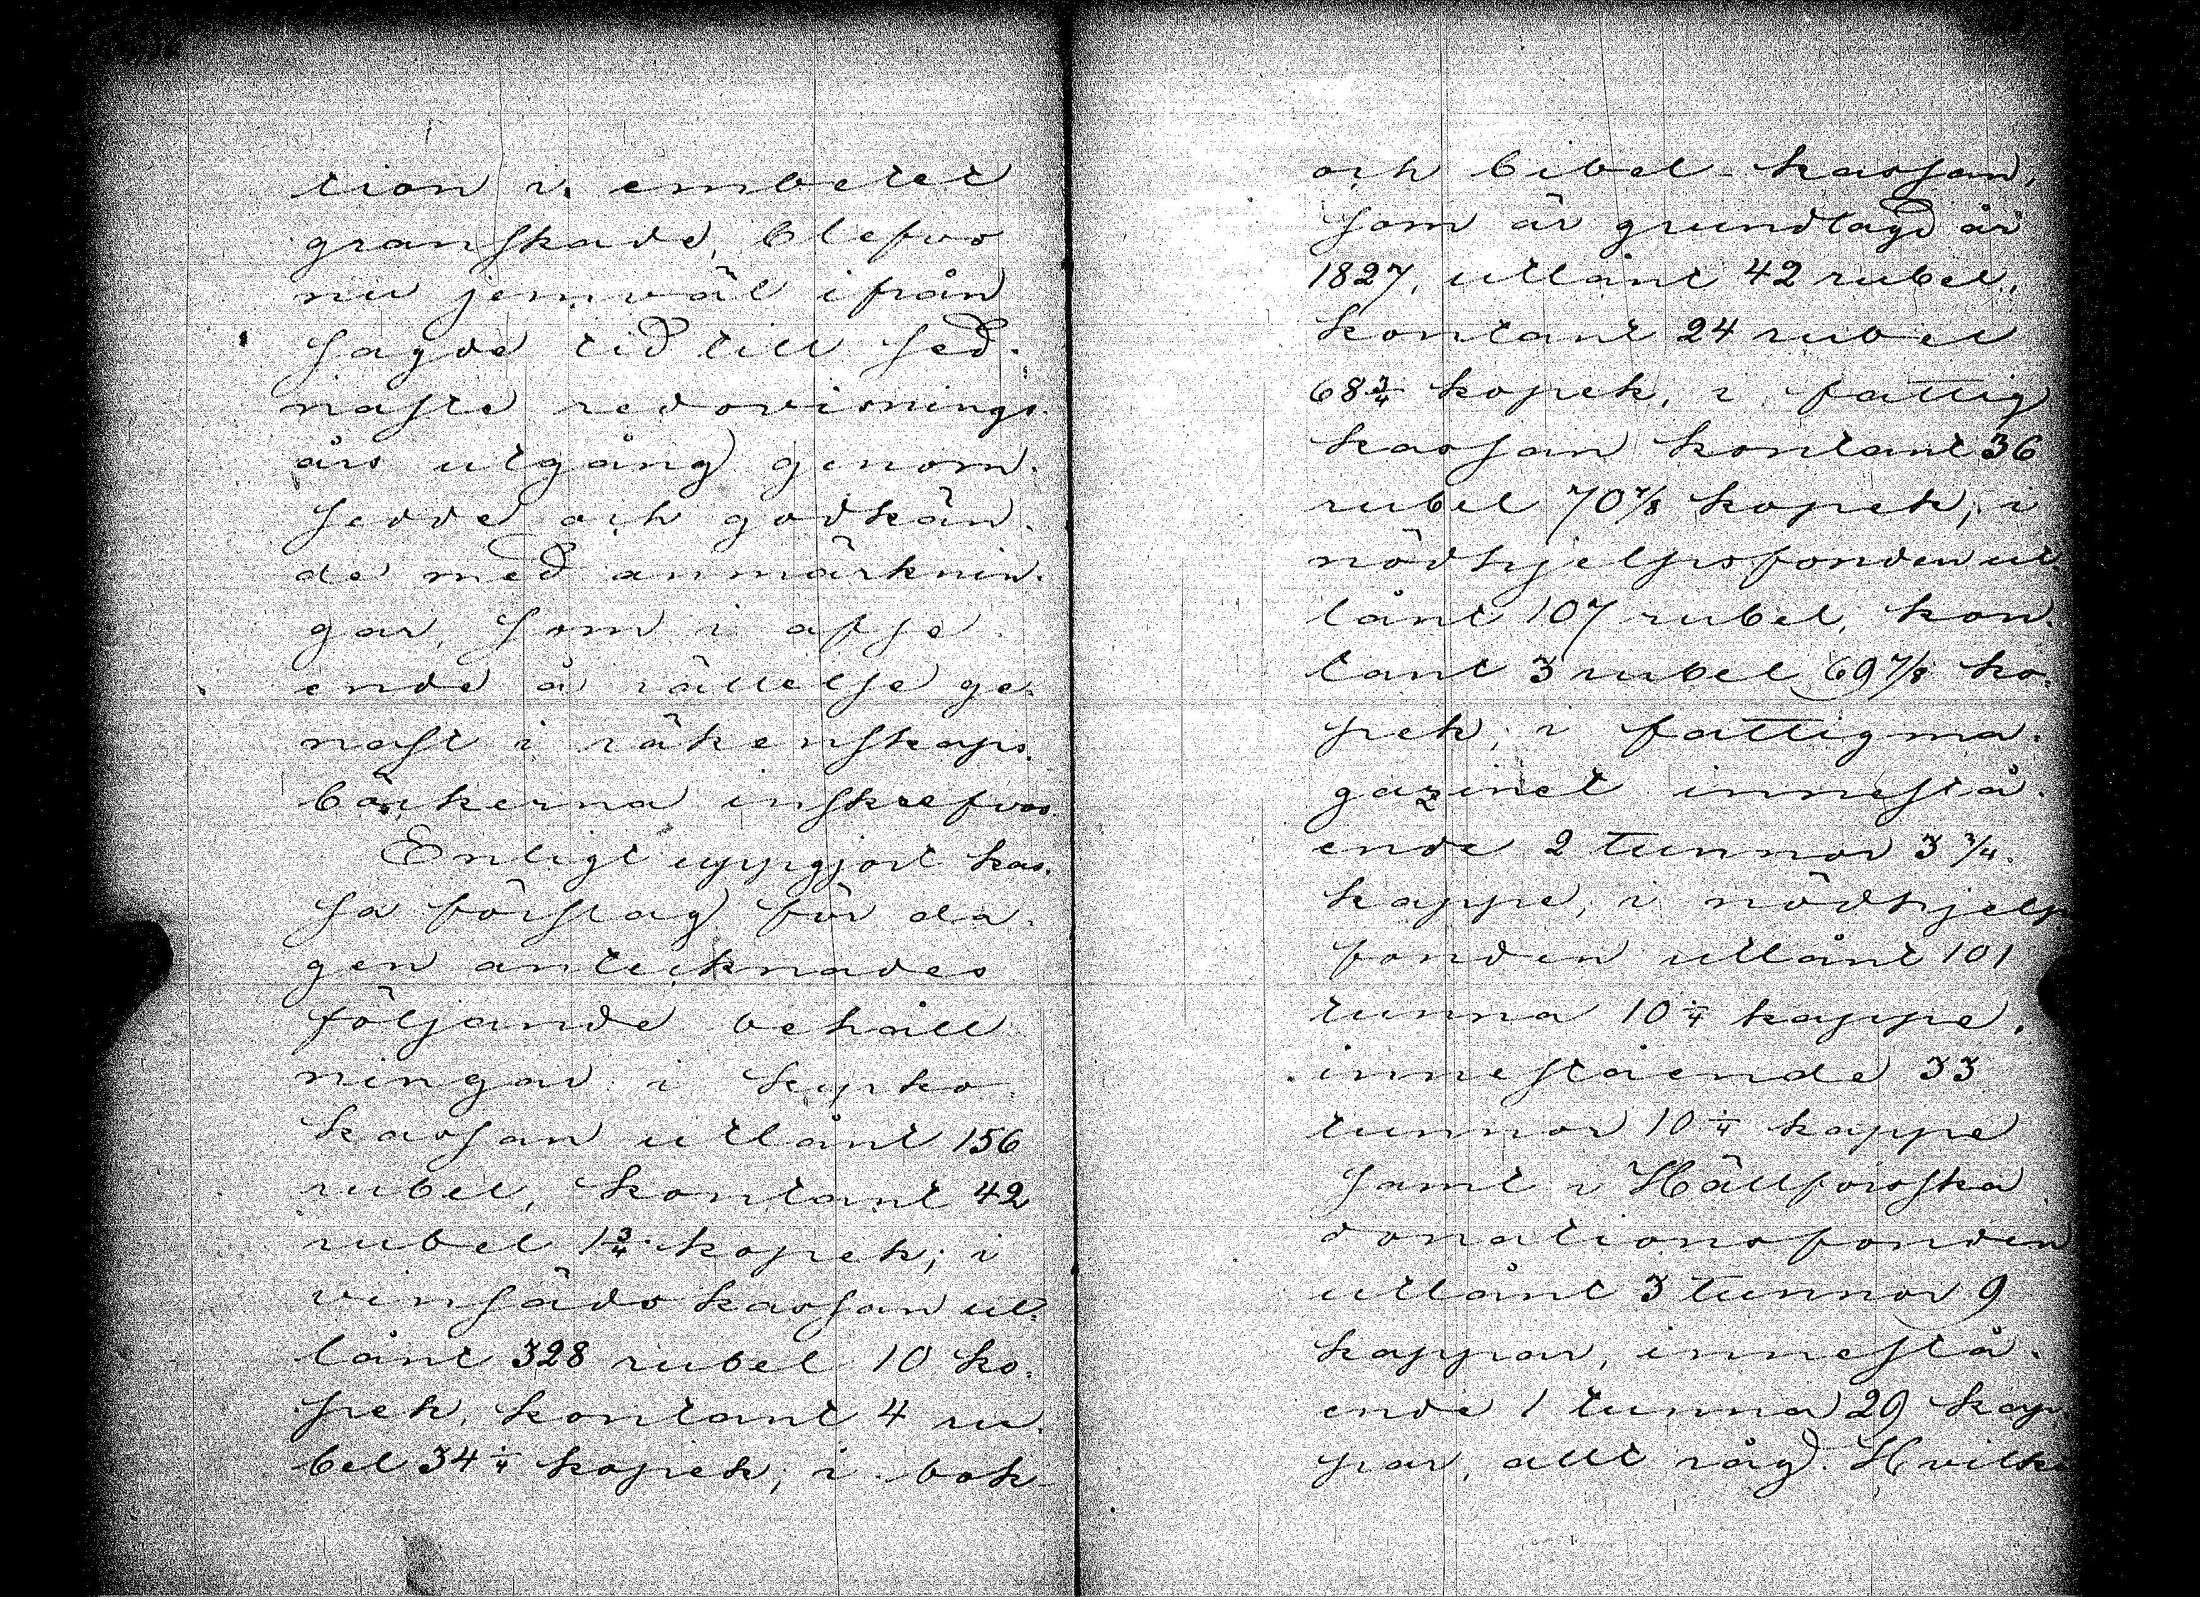 tion i embetet
granskade, blefvo
nu jemväl ifrån
sagde tid till sed-
naste redovisnings-
års utgång genom-
sedde och godkän-
de med anmärknin-
gar, som i afse-
ende å rättelse ge-
nast i räkenskaps-
böckerna inskrefvos.
Enligt uppgjort kas-
sa förslag för da-
gen antecknades
följande behåll
ningar i kyrko
kassan utlånt 156
rubel, kontant 42
rubel 1 3/4 kopek; i
vinsäds kassan ut-
lånt 328 rubel 10 ko-
pek, kontant 4 ru-
bel 34 1/4 kopek; i bok-
och bibel-kassan,
som är grundlagd år
1827, utlånt 42 rubel,
kontant 24 rubel
68 3/4 kopek, i fattig
kassan kontant 36
rubel 70 7/8 kopek; i
nödhjelpsfonden ut-
lånt 107 rubel, kon-
tant 3 rubel 69 7/8 ko-
pek; i fattigma-
gazinet innestå-
ende 2 tunnor 3 3/4
kappe; i nödhjelps
fonden utlånt 101
tunna 10 1/4 kappe,
innestående 33
tunnor 10 1/4 kappe
samt i Hällforsska
donationsfonden
utlånt 3 tunnor 9
kappar, innestå-
ende 1 tunna 29 kap-
par, allt råg. Hvilka